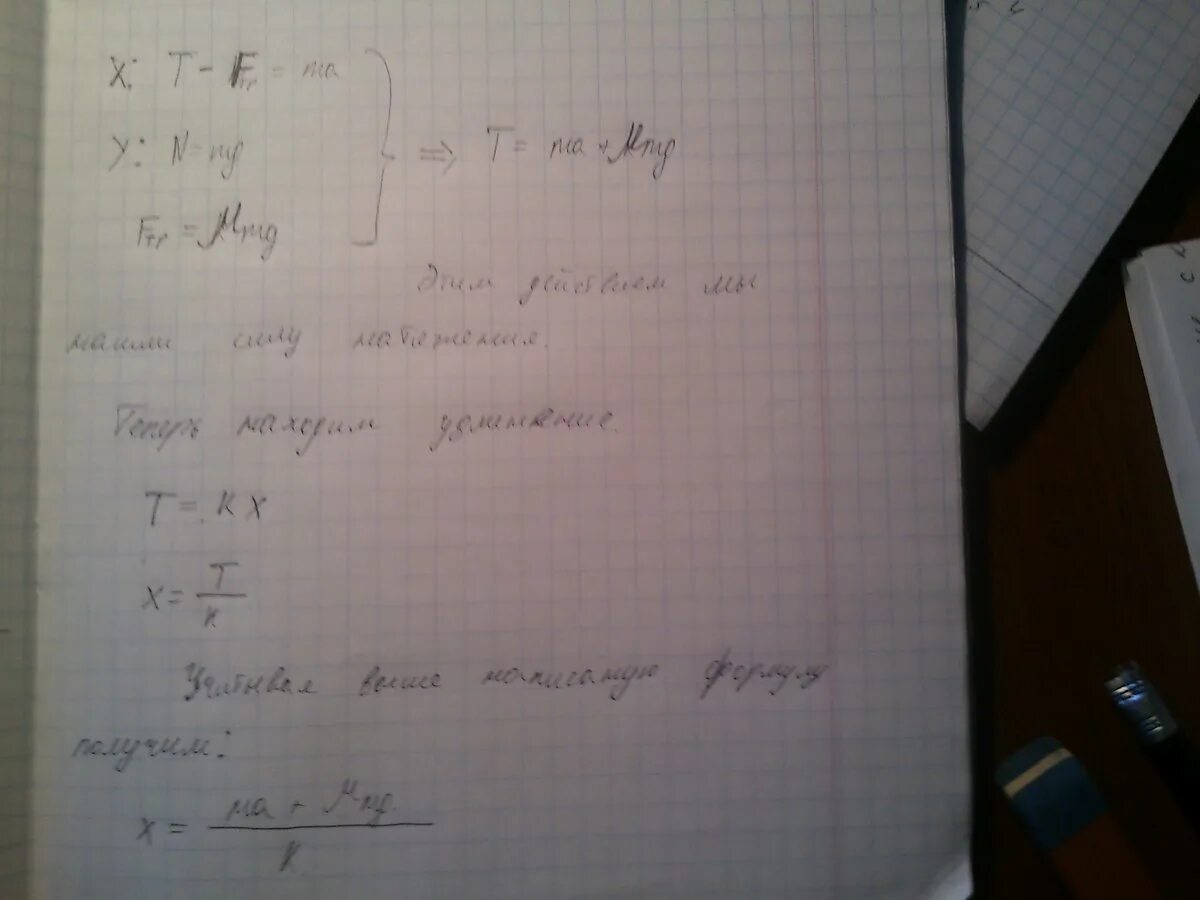 X: T - Fтр = ma
У: N = mg ⇒ T = ma + μmg
Fтр = μmg
Этим действием мы
нашли силу натяжения.
Теперь находим удлинение.
T = kx
x = T/k
Учитывая выше написаную формулу
получим:
x = (ma + μmg)/k